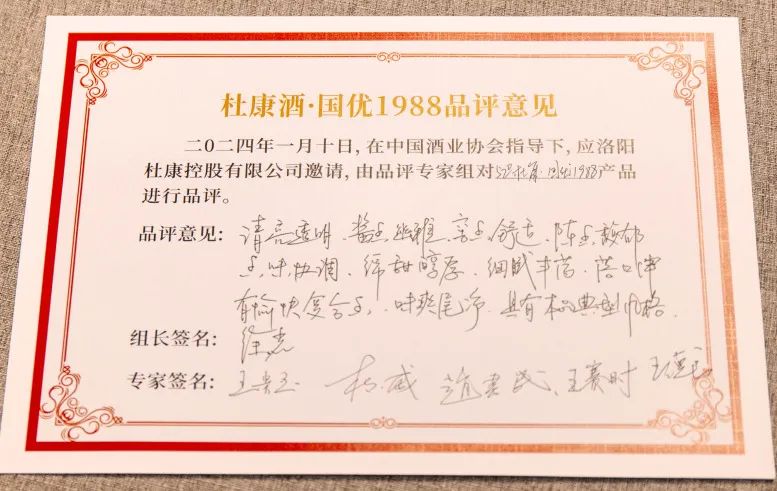 杜康酒·国优1988品评意见
二〇二四年一月十日,在中国酒业协会指导下,应洛阳
杜康控股有限公司邀请,由品评专家组对国优1988产品
进行品评。
品评意见:清亮透明、酱香幽雅、窖香舒适、陈香馥郁
香味协调、绵甜醇厚、细腻丰满、落口净
有愉快复合香、味爽尾净、具有本品典型风格.
组长签名:徐岩
专家签名:王赛时